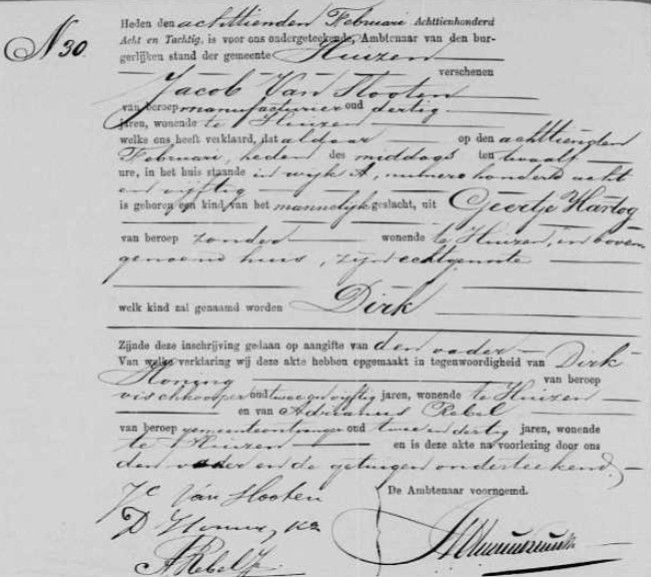 N 30
Heden den achttienden Februari Achttienhonderd
Acht en Tachtig, is voor ons ondergeteekende, Ambtenaar van den bur-
gerlijken stand der gemeente Huizen
verschenen
Jacob Van Slooten
van beroep manufacturier oud dertig
jaren, wonende te Huizen
welke ons heeft verklaard, dat aldaar op den achttienden
Februari, heden des middags ten twaalf
ure, in het huis staande in wijk A, numero honderd acht
en vijftig
is geboren een kind van het mannelijk geslacht, uit Geertje Hartog
van beroep zonder wonende te Huizen, in boven
genoemd huis, zijn echtgenoote
welk kind zal genaamd worden Dirk
Zijnde deze inschrijving gedaan op aangifte van den vader
Van welke verklaring wij deze akte hebben opgemaakt in tegenwoordigheid van Dirk
Honing van beroep
vischkooper oud twee en vijftig jaren, wonende te Huizen
en van Adrianus Rebel
van beroep gemeenteontvanger oud twee en dertig jaren, wonende
te Huizen en is deze akte na voorlezing door ons
den vader en de getuigen onderteekend.
Jc Van Slooten
De Ambtenaar voornoemd.
D Honing, Kz
A Rebel Jz